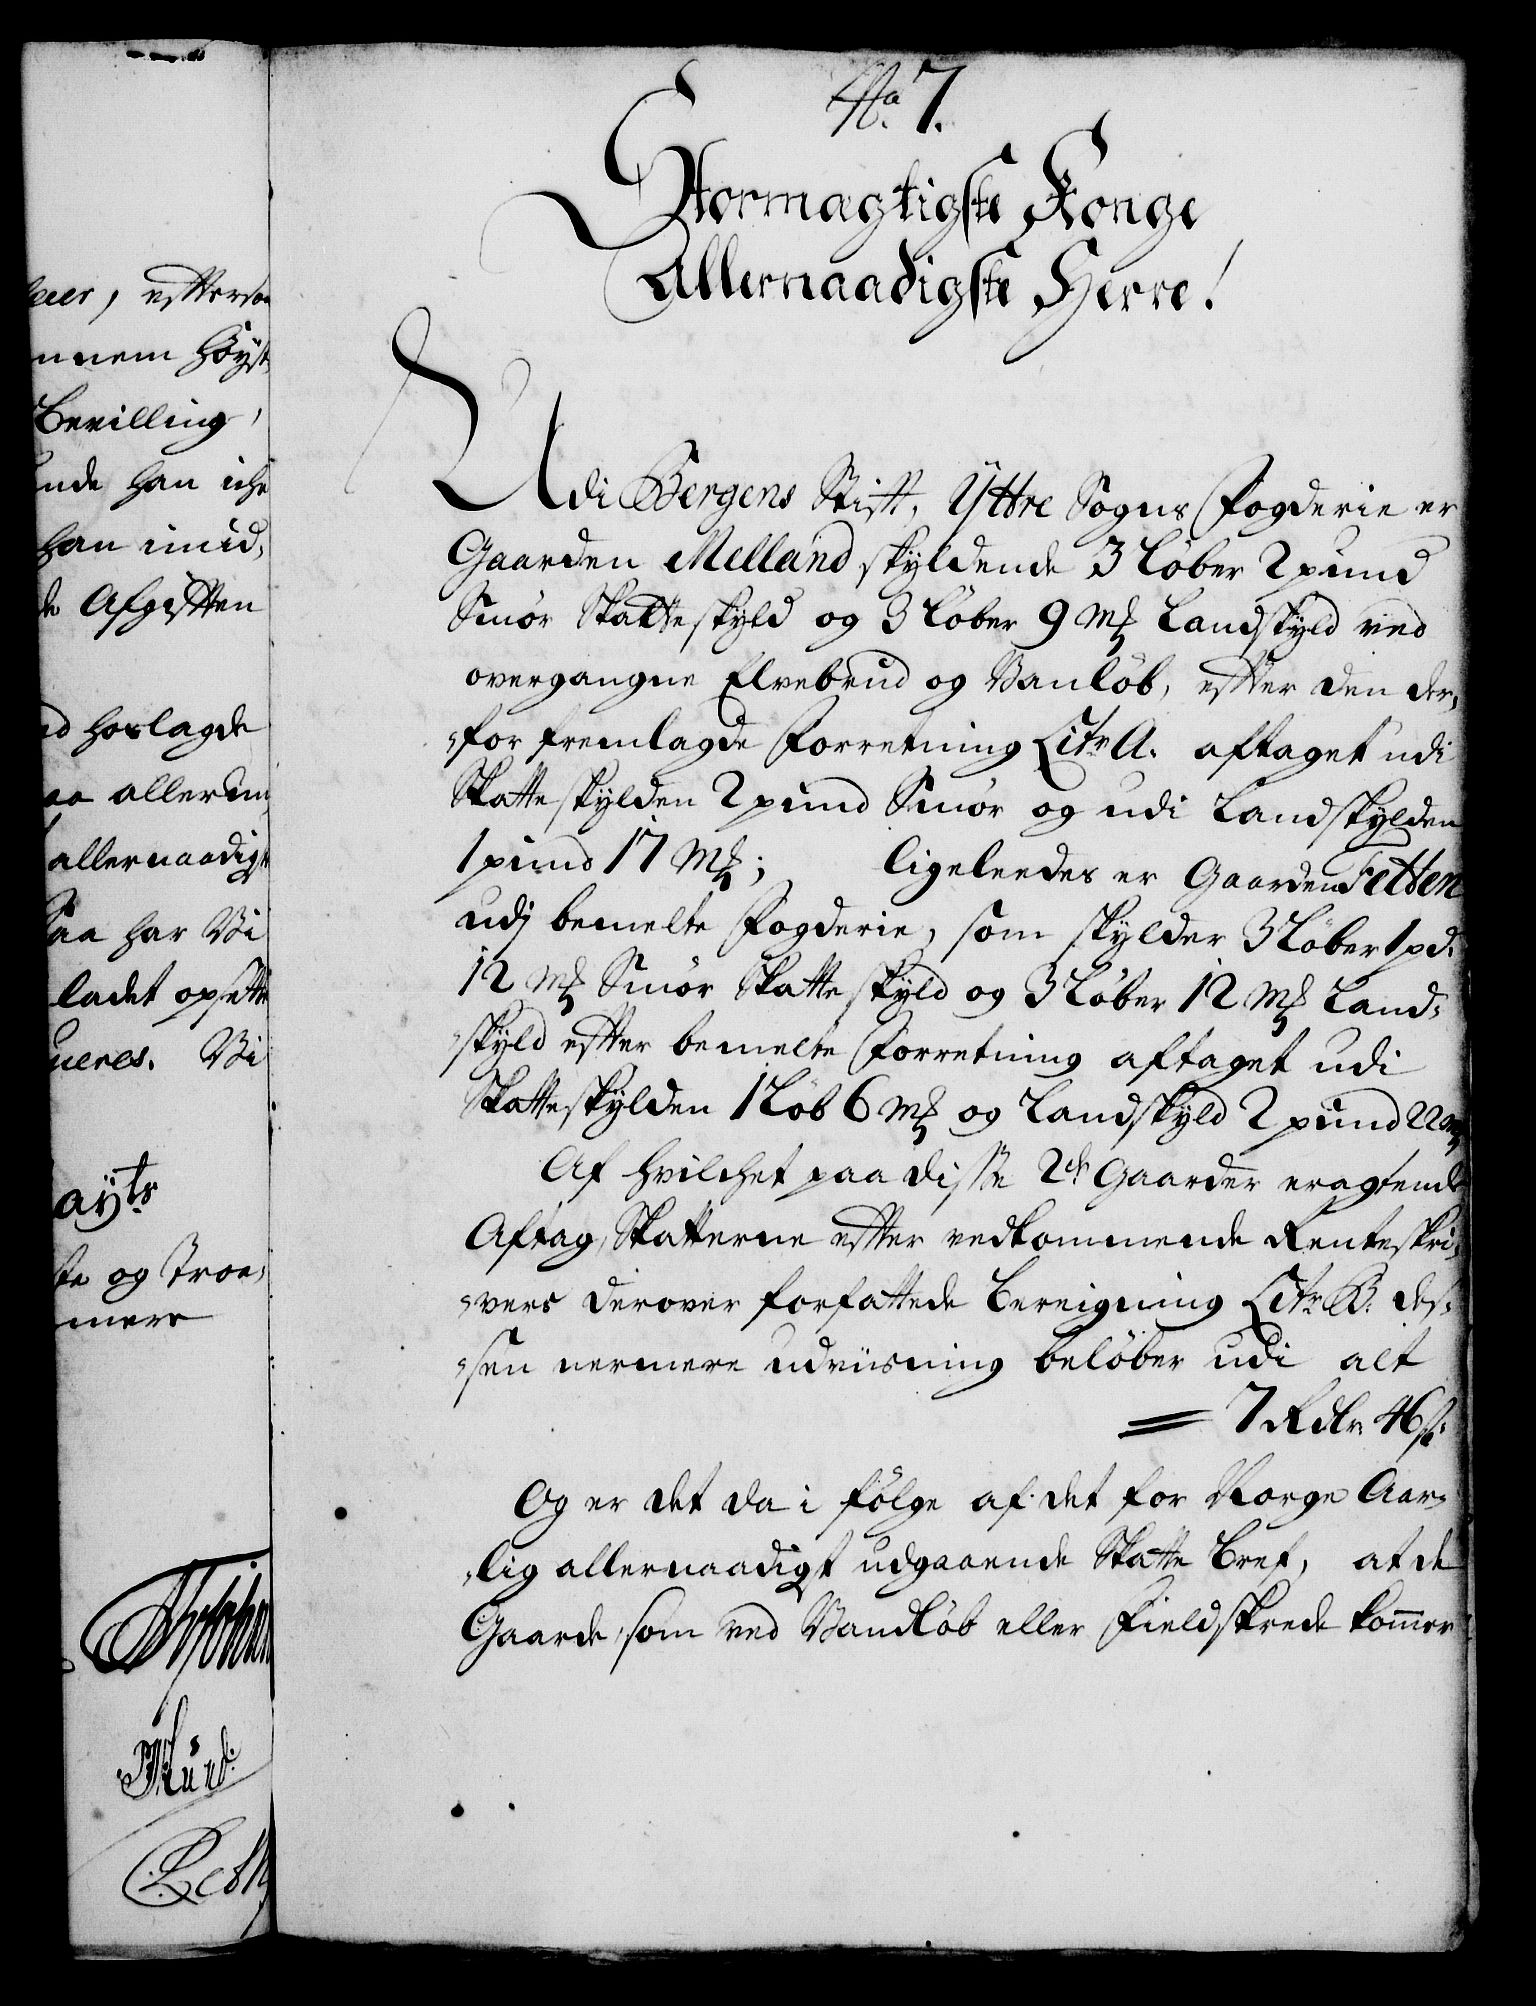 No. 7.
Stormægtigste Konge
Allernaadigste Herre!
Udi Bergens Stift, Yttre Sogns Fogderie er
Gaarden Melland skyldende 3 Løber 2 pund
Smør Skatteskyld og 3 Løber 9 Mk Landskyld ved
overgangne Elvebrud og Vanløb, effter den der,
"for fremlagde Forretning Litr A. aftaget udi
Skatteskylden 2 pund Smør og udi Landskylden
1 pund 17 Mk; ligeleedes er Gaarden Fetten
udj bemelte Fogderie, som skylder 3 Løber 1 pd:
12 Mk Smør Skatteskyld og 3 Løber 12 Mk Land=
"skyld effter bemelte Forretning aftaget udi
Skatteskylden 1 Løb 6 Mk og Landskyld 2 pund 22 Mk
Af hvilchet paa disse 2de Gaarder eragtende
Aftag, Skatterne effter vedkommende Renteskri,
"vers derover forfattede Bereigning Litr B. des=
"sen nermere udviisning beløber udi alt
= 7 Rdlr 46 s:
Og er det da i følge af det for Norge Aar=
"lig allernaadigst udgaaende Skatte Bref, at de
Gaarde, som ved Vandløb eller Fieldskrede kommer
leer, efftersom
nnem Høyst
Bevilling,
unde han iche
han imid,
de Afgifften
nd hoslagde
allerun
allernaadigst
Saa har Vi
ladet opsætte
ueres. Vi
ayts
te og Troe,
mere